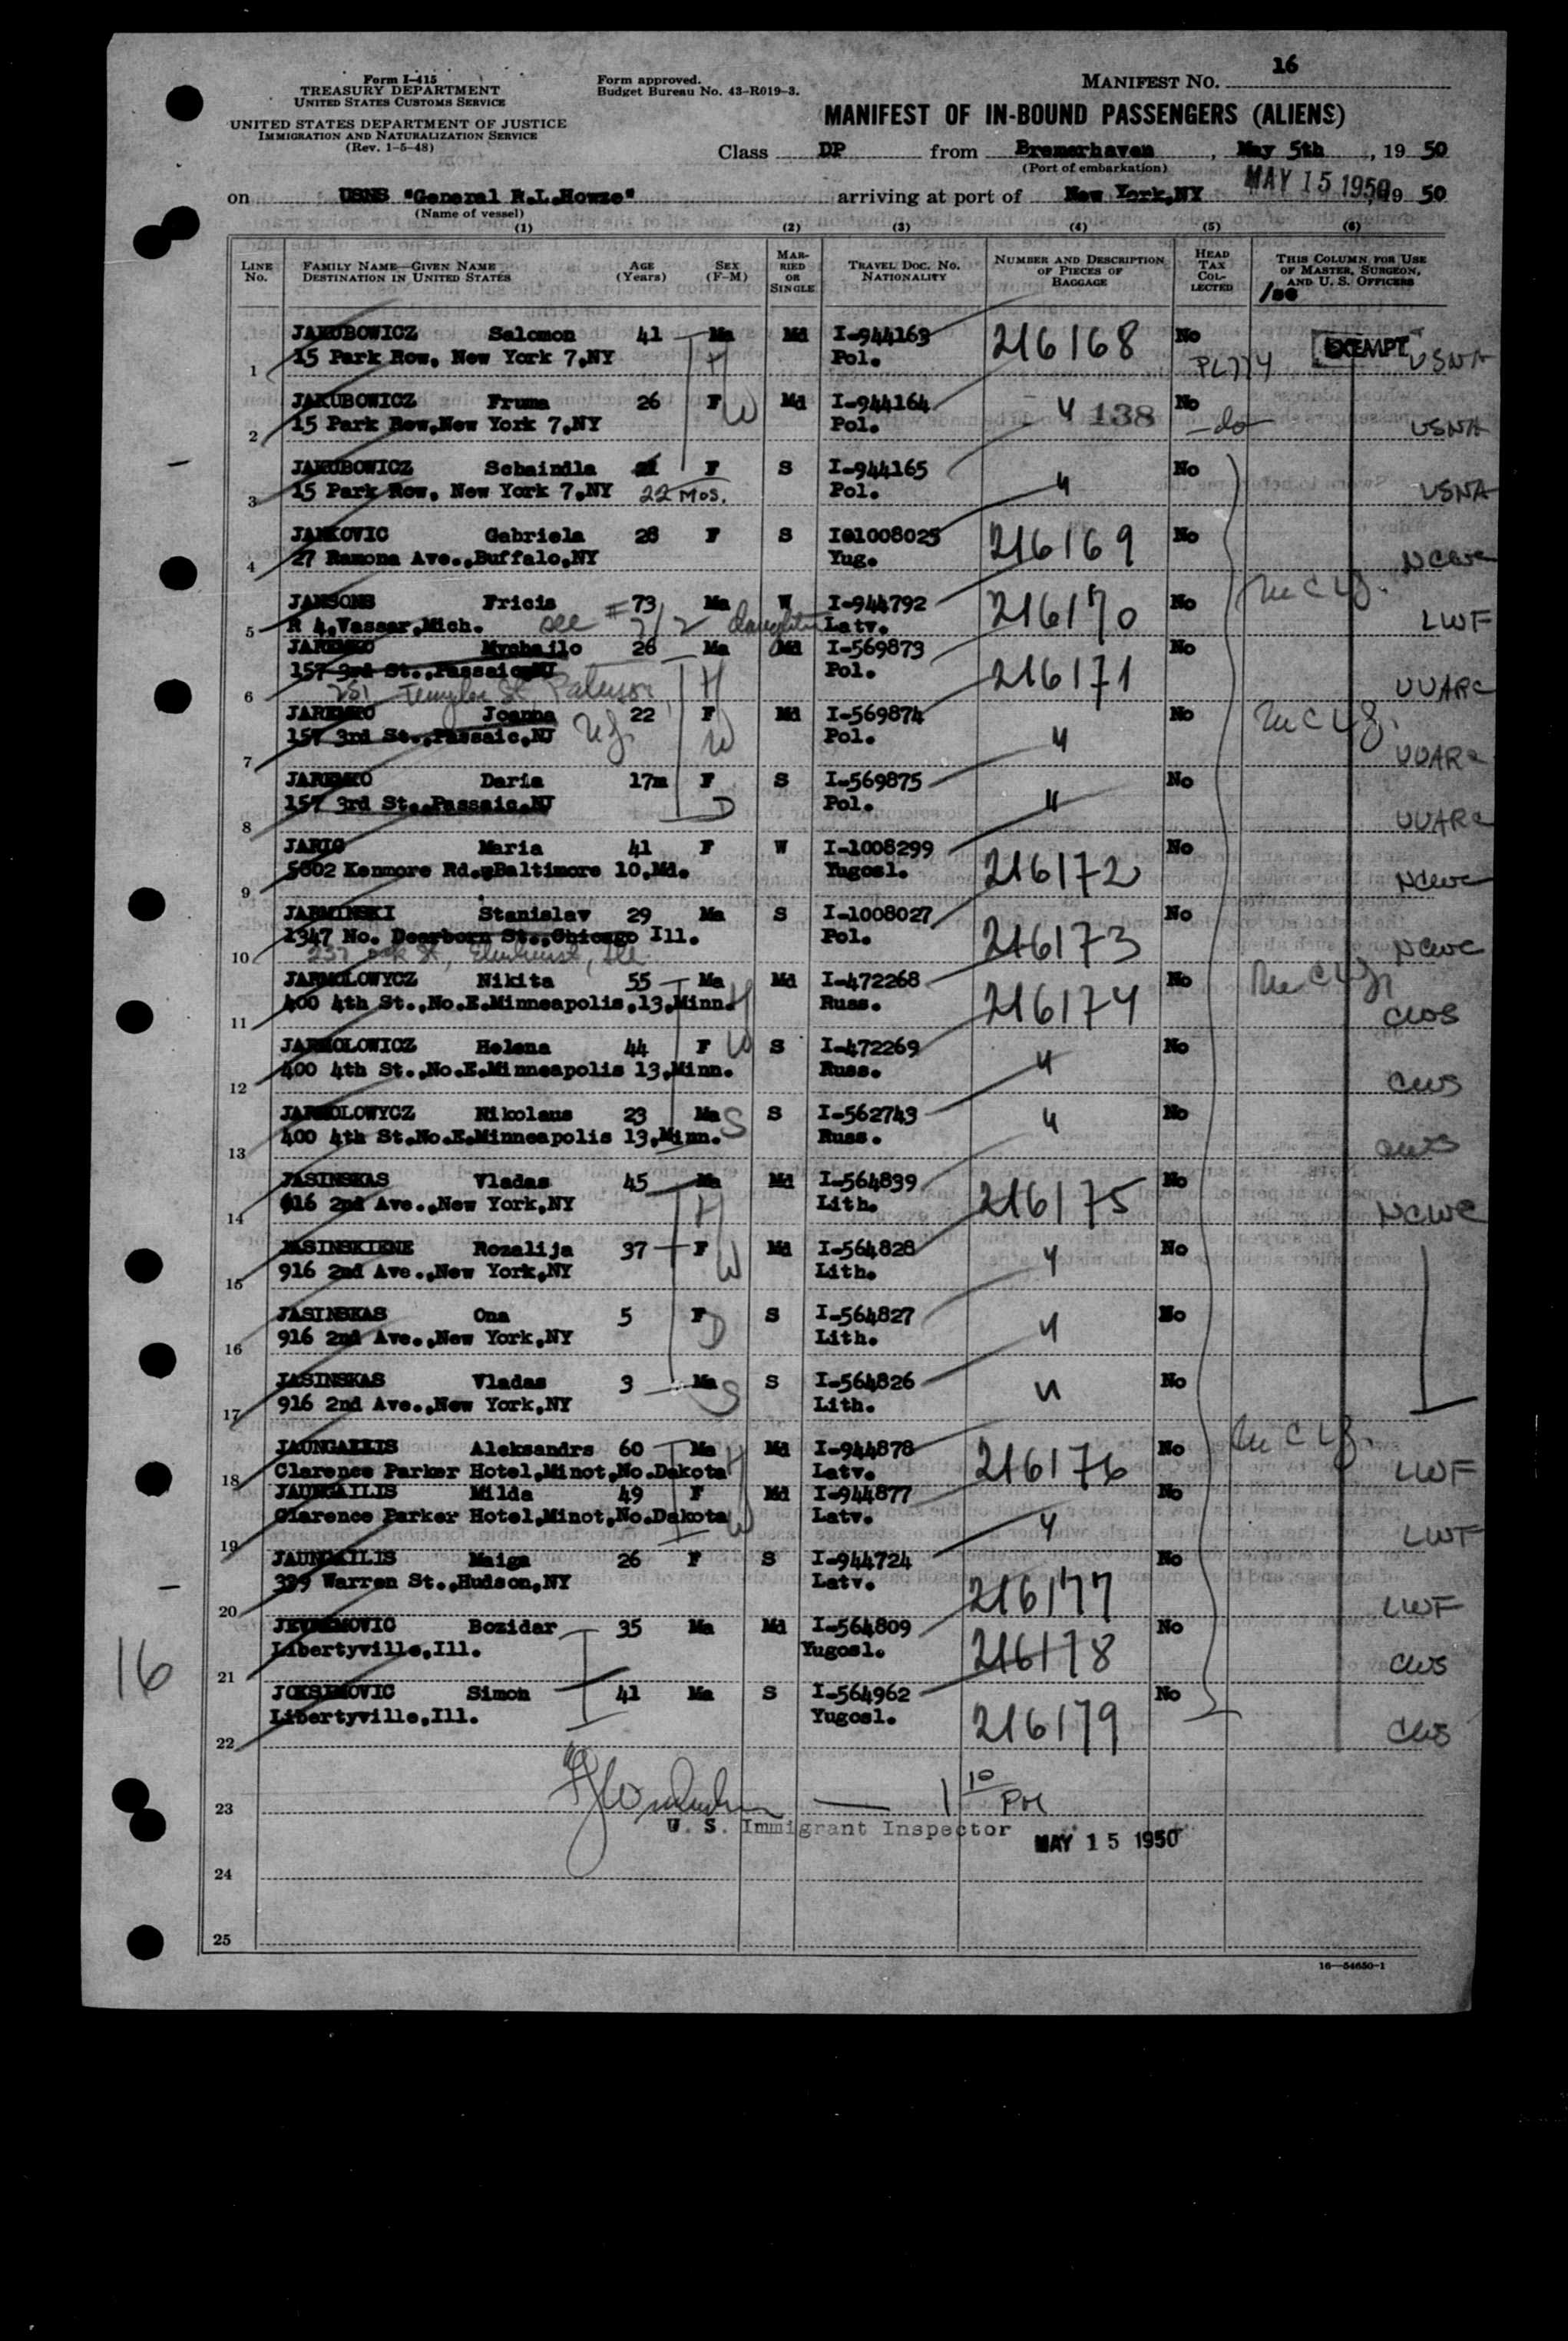 Form I-415
TREASURY DEPARTMENT
UNITED STATES CUSTOMS SERVICE
UNITED STATES DEPARTMENT OF JUSTICE
IMMIGRATION AND NATURALIZATION SERVICE
(Rev. 1-5-48)
Form approved.
Budget Bureau No. 43-R019-3.
MANIFEST NO. 16
MANIFEST OF IN-BOUND PASSENGERS (ALIENS)
Class DP from Bremerhaven, May 5th, 19 50
(Port of embarkation)
on USNS "General R.L.Howze" arriving at port of New York,NY MAY 15 1950, 19 50
(Name of vessel)
(1) (2) (3) (4) (5) (6)
LINE No. FAMILY NAME—GIVEN NAME DESTINATION IN UNITED STATES AGE (Years) SEX (F-M) MARRIED OR SINGLE TRAVEL DOC. NO. NATIONALITY NUMBER AND DESCRIPTION OF PIECES OF BAGGAGE HEAD TAX COLLECTED THIS COLUMN FOR USE OF MASTER, SURGEON, AND U. S. OFFICERS
JAKUBOWICZ Salomon 41 Ma Md I-944163 216168 No EXEMPT USNA
1 15 Park Row, New York 7,NY H Pol. PL774
JAKUBOWICZ Fruma 26 F W Md I-944164 " 138 No
2 15 Park Row,New York 7,NY Pol. -do- USNA
JAKUBOWICZ Schaindla 21 F S I-944165 No
3 15 Park Row, New York 7,NY 22 Mos. Pol. " USNA
JANKOVIC Gabriela 28 F S I01008025 216169 No
4 27 Ramona Ave.,Buffalo,NY Yug. NCWC
JANSONS Fricis 73 Ma W I-944792 216170 No
5 R 4,Vassar,Mich. see # 7/2 daughter Latv. LWF
JAREMKO Mychailo 26 Ma Md I-569873 216171 No
157 3rd St.,Passaic,NJ H Pol.
6 Temple St. Paterson UUARC
JAREMKO Joanna 22 F Md I-569874 No
7 157 3rd St.,Passaic,NJ W Pol. " UUARC
JAREMKO Daria 17m F S I-569875 No
8 157 3rd St.,Passaic,NJ D Pol. " UUARC
JARIC Maria 41 F W I-1008299 216172 No
9 5602 Kenmore Rd.,Baltimore 10,Md. Yugosl. NCWC
JARMINSKI Stanislav 29 Ma S I-1008027 216173 No
1347 No. Dearborn St.,Chicago Ill. Pol.
10 Elmhurst, Ill. NCWC
JARMOLOWYCZ Nikita 55 Ma Md I-472268 216174 No
11 400 4th St.,No.E.Minneapolis,13,Minn. H Russ. CWS
JARMOLOWICZ Helena 44 F W S I-472269 " No
12 400 4th St.,No.E.Minneapolis 13,Minn. Russ. CWS
JARMOLOWYCZ Nikolaus 23 Ma S S I-562743 " No
13 400 4th St.No.E.Minneapolis 13,Minn. Russ. CWS
JASINSKAS Vladas 45 Ma Md I-564839 216175 No
14 916 2nd Ave.,New York,NY H Lith. NCWC
JASINSKIENE Rozalija 37 F Md I-564828 " No
15 916 2nd Ave.,New York,NY W Lith.
JASINSKAS Ona 5 F S I-564827 " No
16 916 2nd Ave.,New York,NY D Lith.
JASINSKAS Vladas 3 Ma S I-564826 " No
17 916 2nd Ave.,New York,NY S Lith.
JAUNGAILIS Aleksandrs 60 Ma Md I-944878 216176 No
18 Clarence Parker Hotel,Minot,No.Dakota H Latv. LWF
JAUNGAILIS Milda 49 F Md I-944877 No
19 Clarence Parker Hotel,Minot,No.Dakota W Latv. " LWF
JAUNGAILIS Maiga 26 F S I-944724 216177 No
20 399 Warren St.,Hudson,NY Latv. LWF
JEVREMOVIC Bozidar 35 Ma Md I-564809 216178 No
21 Libertyville,Ill. Yugosl. CWS
JOKSIMOVIC Simon 41 Ma S I-564962 216179 No
22 Libertyville,Ill. Yugosl. CWS
16
23 1 10 PM
U. S. Immigrant Inspector MAY 15 1950
24
25
16—54650-1